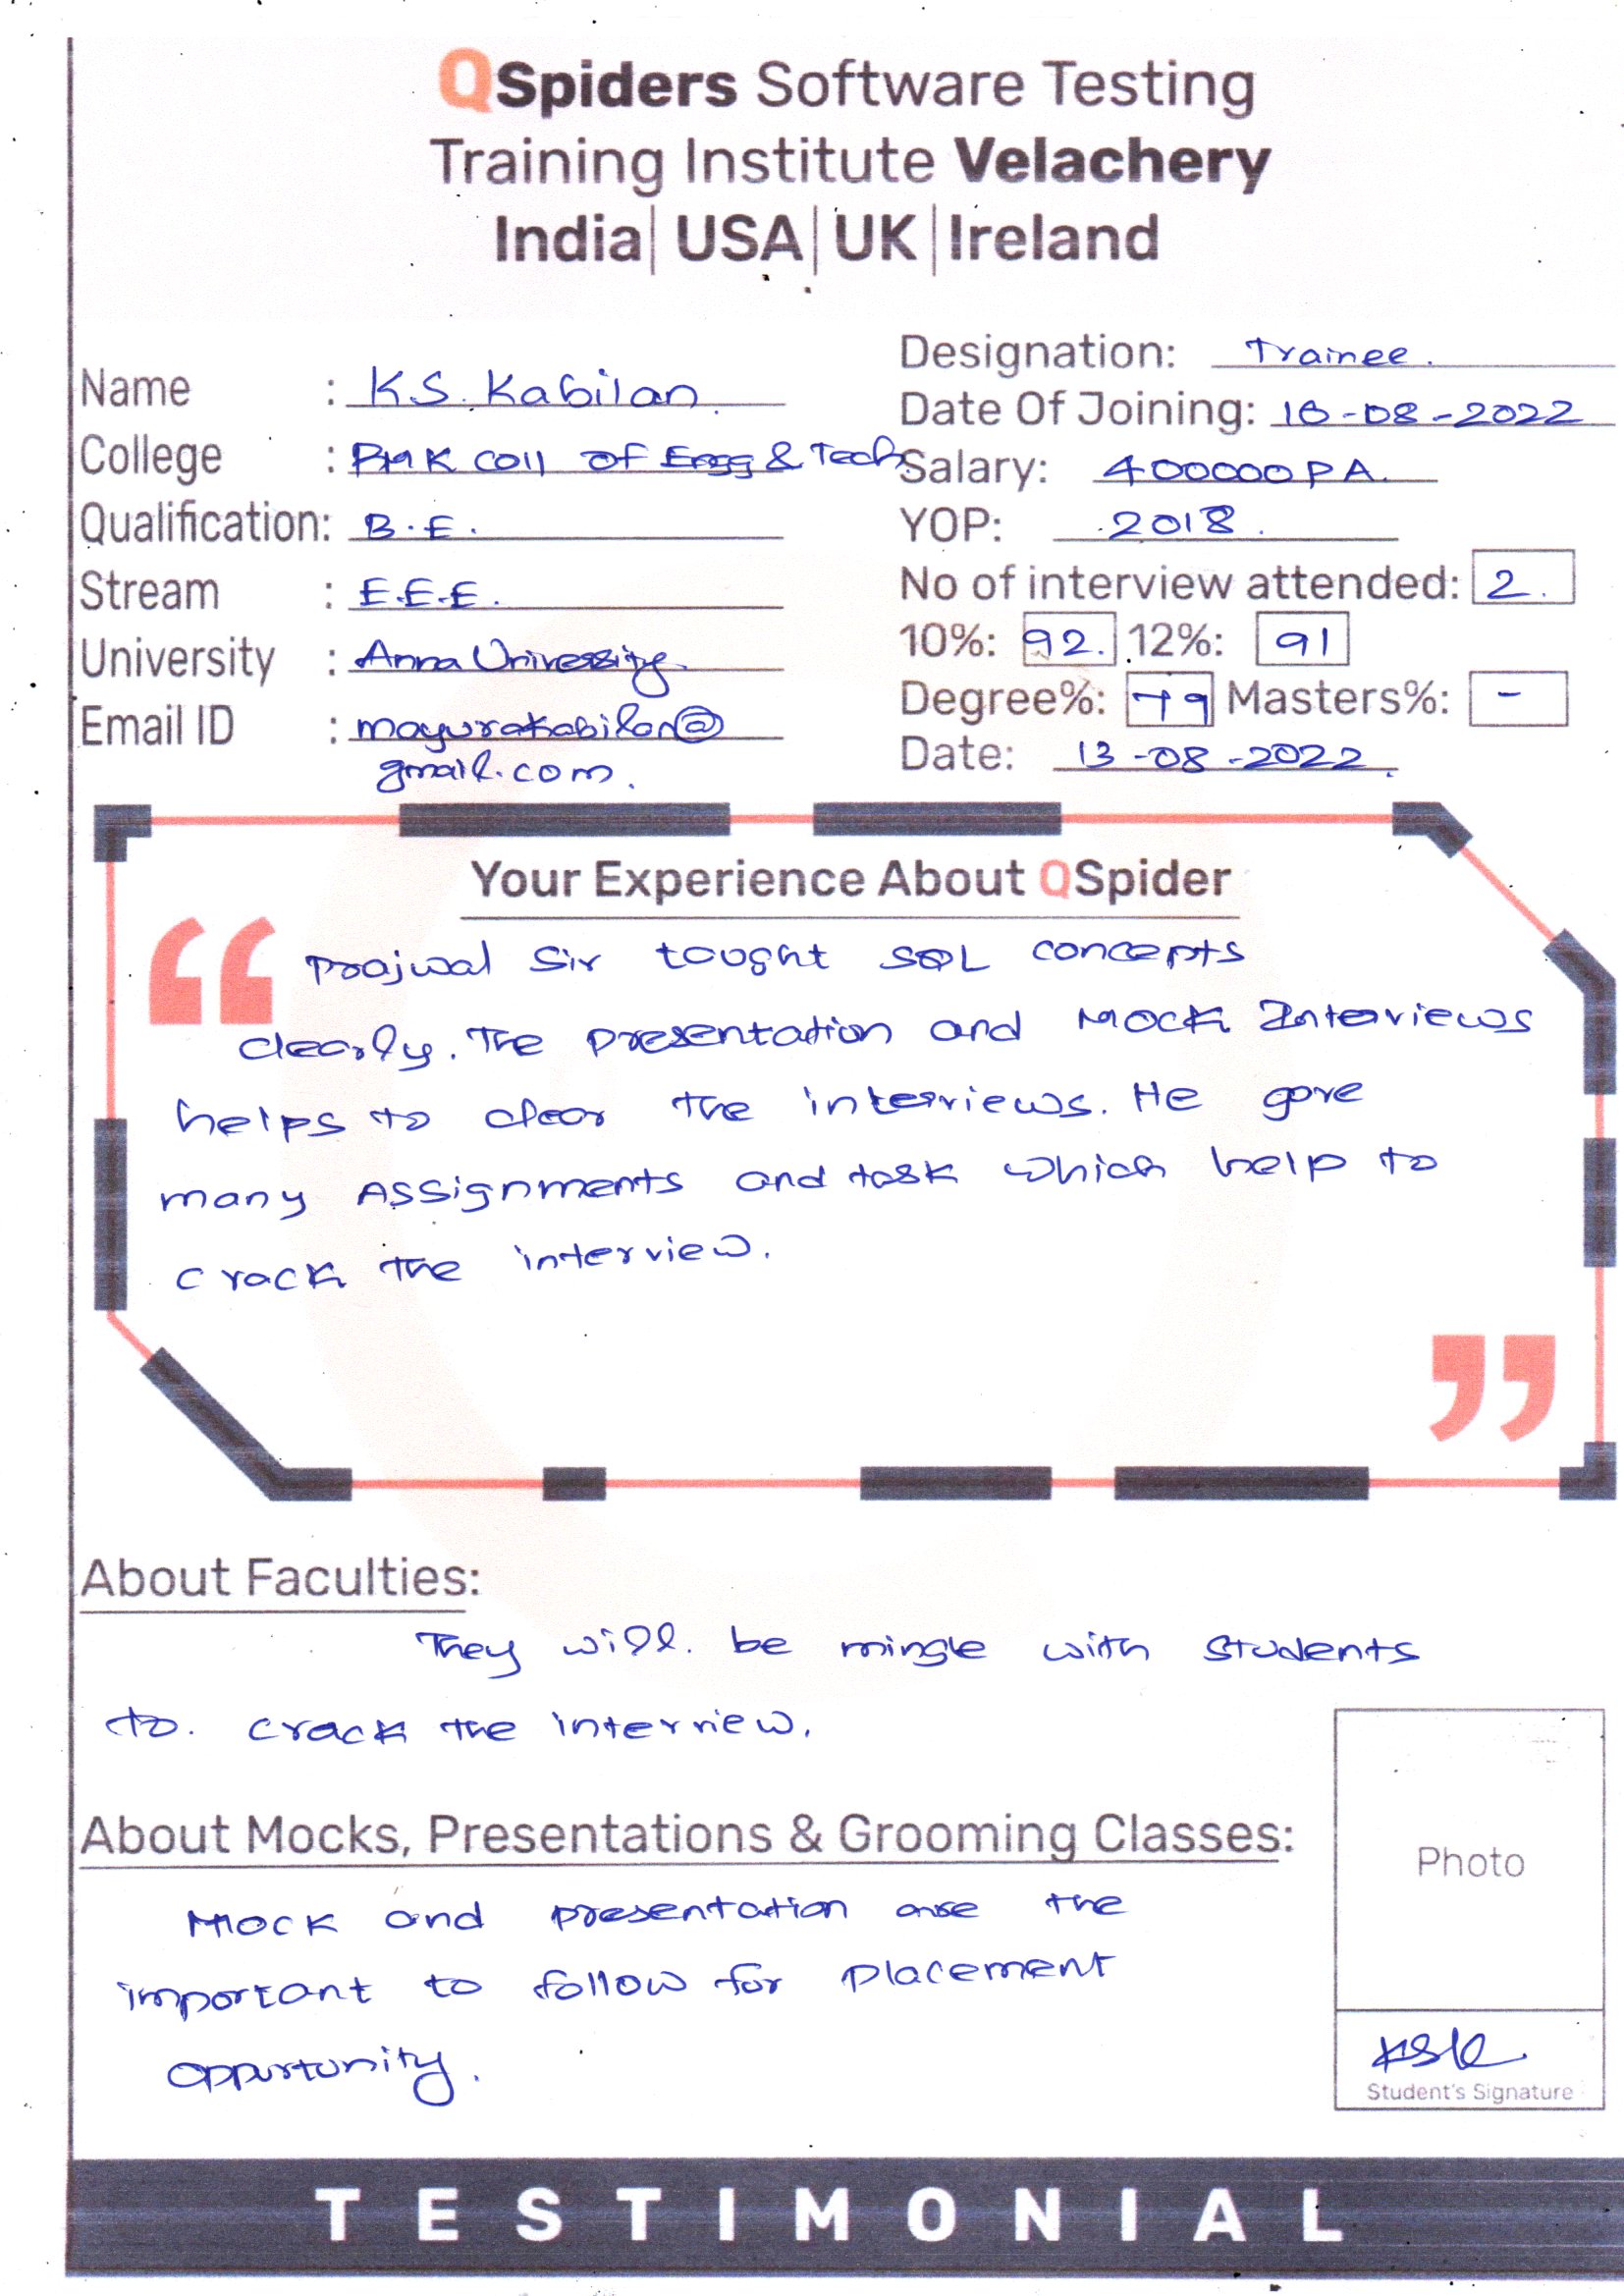 QSpiders Software Testing
Training Institute Velachery
India| USA| UK| Ireland
Name : K.S. Kabilan.
College : PMK Coll of Engg & Tech.
Qualification: B.E.
Stream : E.E.E.
University : Anna University.
Email ID : mayurakabilan@
gmail.com.
Designation: Trainee.
Date Of Joining: 18-08-2022
Salary: 400000 PA.
YOP: 2018.
No of interview attended: 2.
10%: 92. 12%: 91
Degree%: 79 Masters%: -
Date: 13-08-2022.
Your Experience About QSpider
“
Prajwal Sir tought SQL concepts
clearly. The presentation and Mock Interviews
helps to clear the interviews. He gave
many Assignments and task which help to
crack the interview.
”
About Faculties:
They will. be mingle with students
to. crack the interview.
About Mocks, Presentations & Grooming Classes:
Mock and presentation are the
important to follow for placement
oppurtunity.
Photo
KSK
Student's Signature
TESTIMONIAL